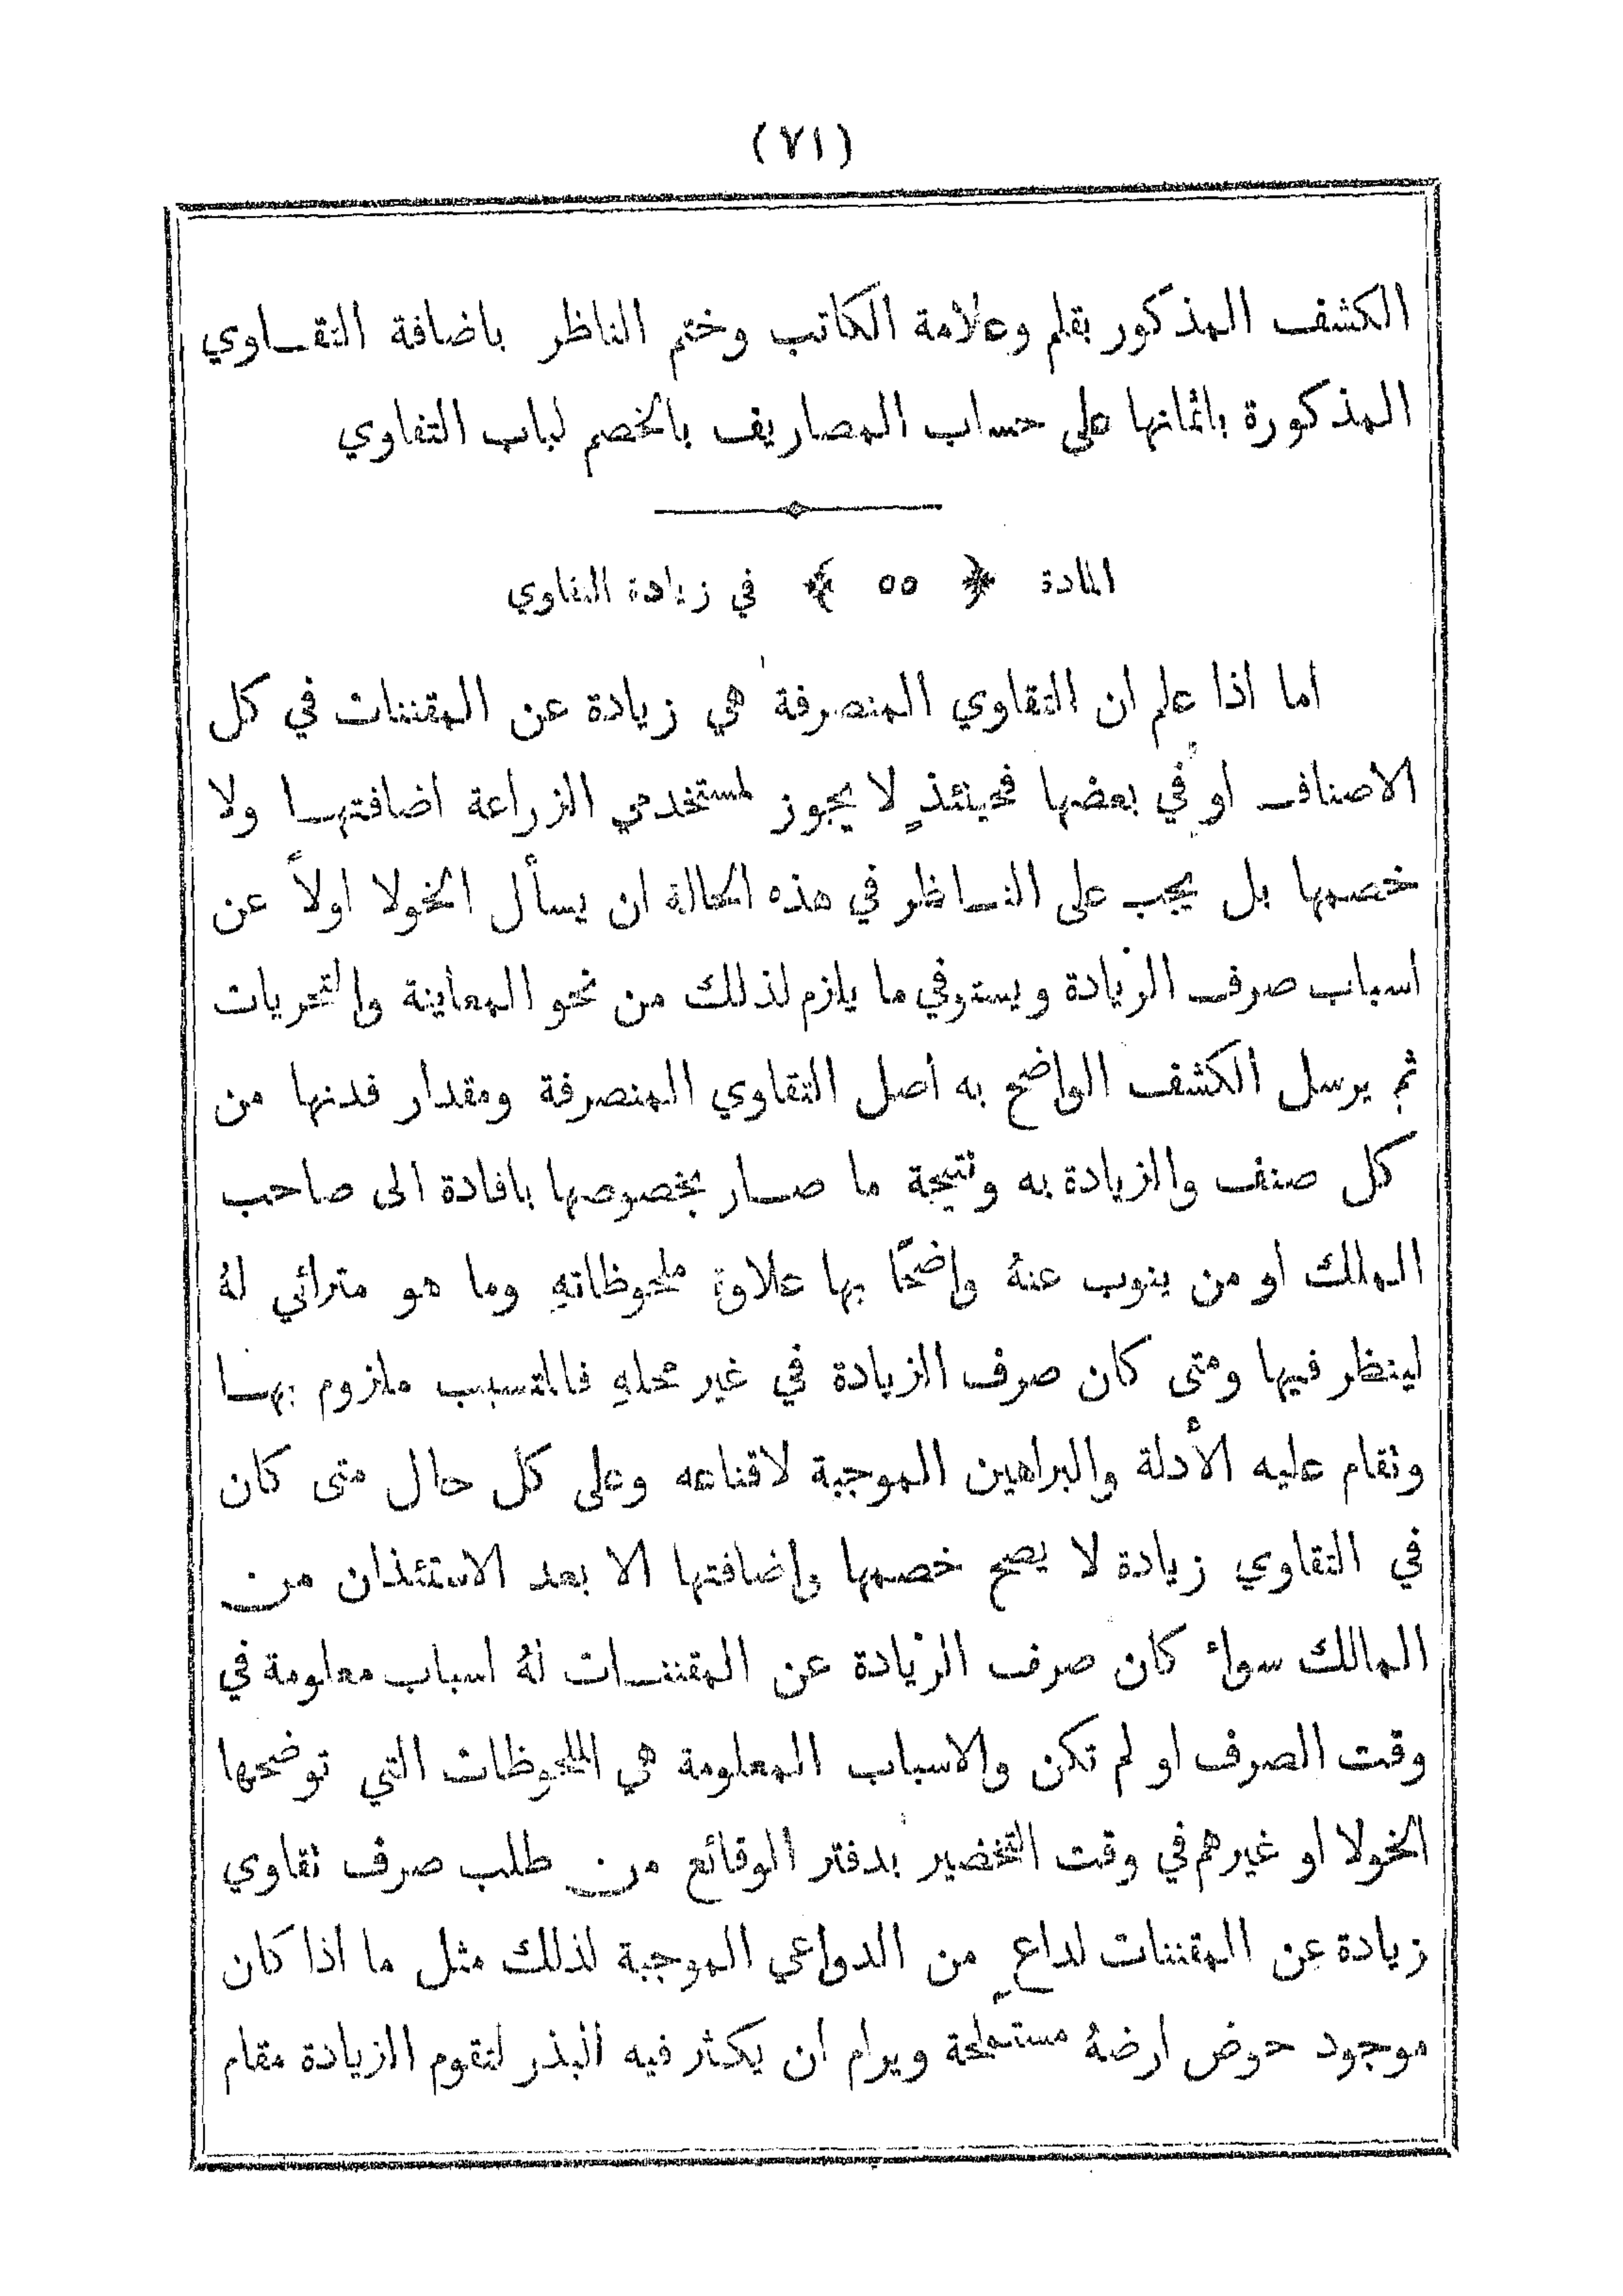 (٧١)
الكشف المذكور بقلم وعلامة الكاتب وختم الناظر باضافة التقاوي
المذكورة باثمانها على حساب المصاريف بالخصم لباب التقاوي
المادة ﴿ ٥٥ ﴾ في زيادة التقاوي
اما اذا علم ان التقاوي المنصرفة هي زيادة عن المقننات في كل
الاصناف او في بعضها فحينئذٍ لا يجوز لمستخدمي الزراعة اضافتها ولا
خصمها بل يجب على الناظر في هذه الحالة ان يسأل الخولا اولاً عن
اسباب صرف الزيادة ويستوفي ما يلزم لذلك من نحو المعاينة والتحريات
ثم يرسل الكشف الواضح به اصل التقاوي المنصرفة ومقدار فدنها من
كل صنف والزيادة به ونتيجة ما صار بخصوصها بافادة الى صاحب
الملك او من ينوب عنهُ واضحًا بها علاوة ملحوظاتهِ وما هو مترائي لهُ
لينظر فيها ومتى كان صرف الزيادة في غير محلهِ فالمتسبب ملزوم بها
وتقام عليه الأدلة والبراهين الموجبة لاقناعه وعلى كل حال متى كان
في التقاوي زيادة لا يصح خصمها واضافتها الا بعد الاستئذان من
المالك سواءٌ كان صرف الزيادة عن المقننات لهُ اسباب معلومة في
وقت الصرف او لم تكن والاسباب المعلومة هي الملحوظات التي توضحها
الخولا او غيرهم في وقت التخضير بدفتر الوقائع من طلب صرف تقاوي
زيادة عن المقننات لداعٍ من الدواعي الموجبة لذلك مثل ما اذا كان
موجود حوض ارضهُ مستملحة ويرام ان يكثر فيه البذر لتقوم الزيادة مقام